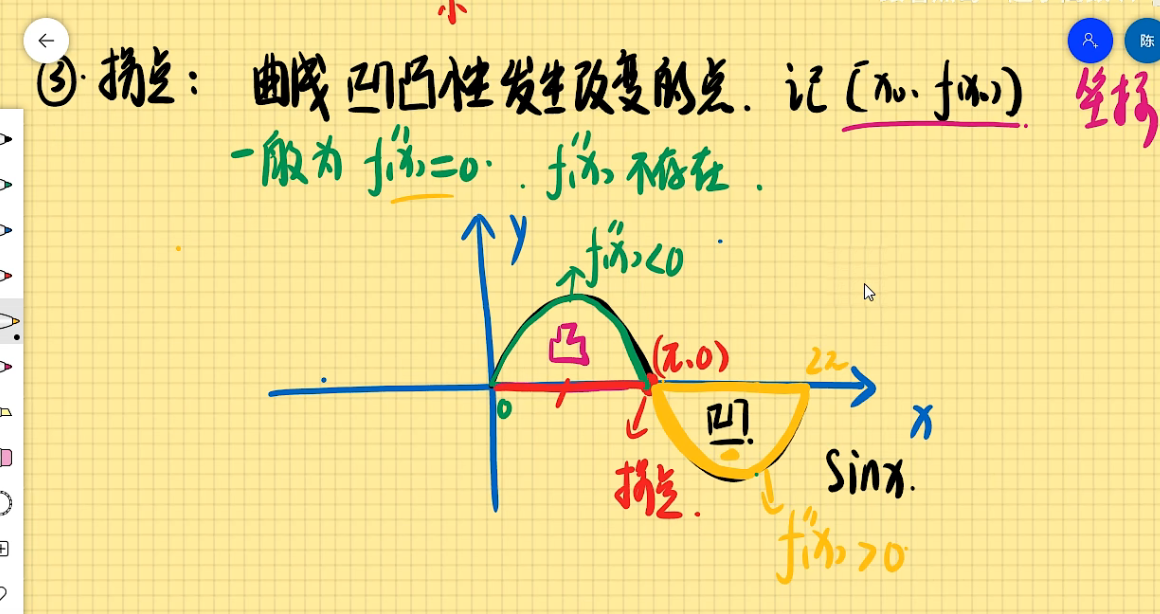 小
陈
③. 拐点： 曲线 凹凸性发生改变的点. 记 (x₀、f(x₀)) 坐标
一般为 f''(x)=0 . f''(x) 不存在 .
y
f''(x)<0
凸
(π,0)
2π
0
凹
x
拐点.
sinx.
f''(x)>0